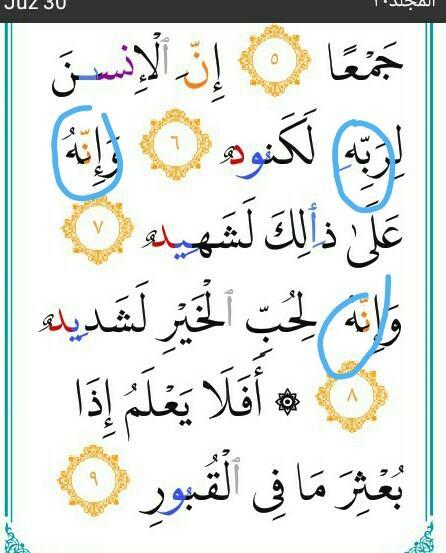 Juz 30 المجلد٣٠
جَمْعًا ٥ إِنَّ ٱلْإِنسَـنَ
لِرَبِّهِ لَكَنُودٌ ٦ وَإِنَّهُ
عَلَىٰ ذَأَلِكَ لَشَهِيدٌ ٧
وَإِنَّهُ لِحُبِّ ٱلْخَيْرِ لَشَدِيدٌ
٨ ۞ أَفَلَا يَعْلَمُ إِذَا
بُعْثِرَ مَا فِى ٱلْقُبُورِ ٩